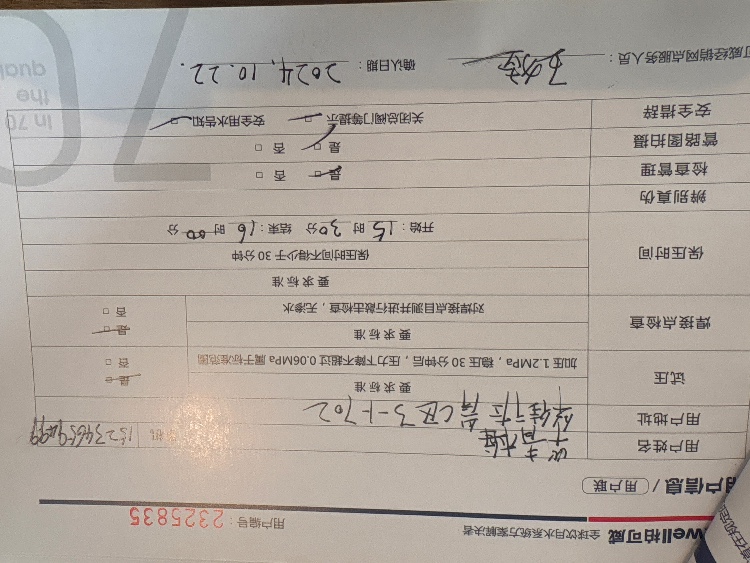 well柏可威 全球饮用水系统方案解决者
用户编号：2325835
用户信息 /（用户联）
用户姓名
用户地址 C区3-1-702
试压 要求标准 是 否
加压 1.2MPa，稳压 30 分钟后，压力下降不超过 0.06MPa 属于标准范围
焊接点检查 要求标准 是 否
对焊接点目测并进行敲击检查，无渗水
保压时间 要求标准
保压时间不得少于 30 分钟
开始：15 时 30 分 结束：16 时 00 分
辨别真伪
检查管理 是 否
管路图拍摄 是 否
安全措辞 关闭总阀门等提示 安全用水告知
可威经销网点服务人员： 确认日期：2024.10.22.
in 70
the
qual